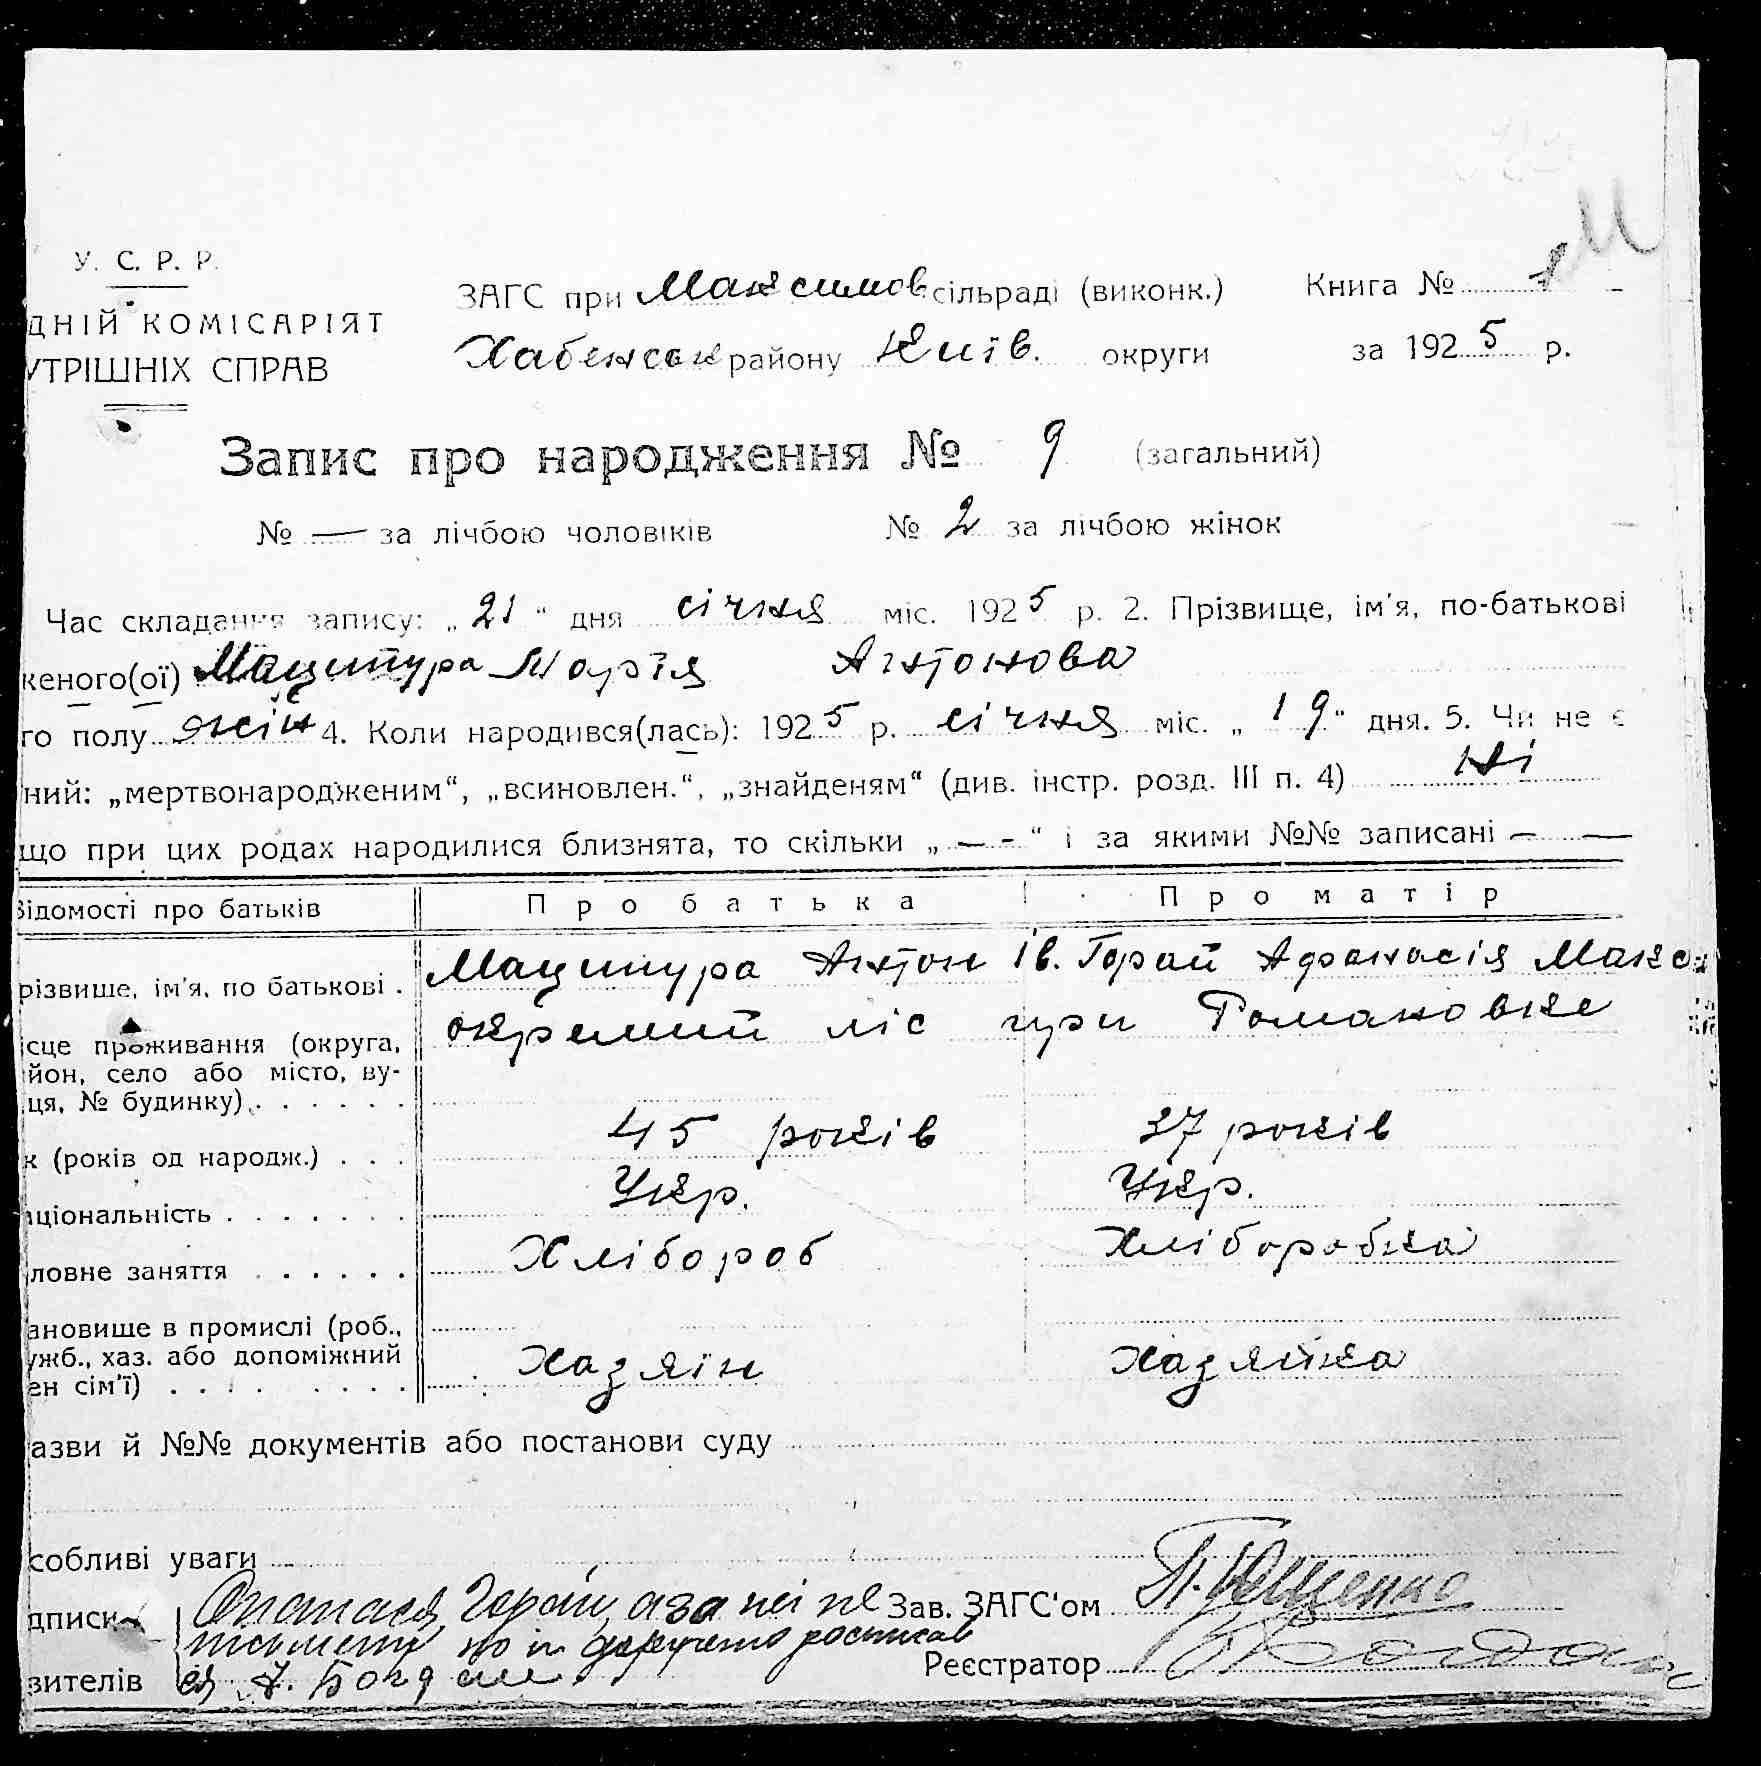 У. С. Р. Р.
ДНІЙ КОМІСАРІЯТ
УТРІШНІХ СПРАВ
ЗАГС при Максимов. сільраді (виконк.) Книга № 1
Хабенськ району Київ. округи за 1925 р.
М
Запис про народження № 9 (загальний)
№ — за лічбою чоловіків № 2 за лічбою жінок
Час складання запису: „21“ дня січня міс. 1925 р. 2. Прізвище, ім'я, по-батькові
женого(ої) Мацитура Марія Антонова
го полу жін 4. Коли народився(лась): 1925 р. січня міс. „19“ дня. 5. Чи не є
ний: „мертвонародженим“, „всиновлен.“, „знайденям“ (див. інстр. розд. III п. 4) Ні
що при цих родах народилися близнята, то скільки „ — - “ і за якими №№ записані — —
Відомості про батьків Про батька Про матір
різвище, ім'я, по батькові . Маципура Антон Ів. Горай Афанасія Макс
ісце проживання (округа, окремий ліс при Романовке
йон, село або місто, ву-
ця, № будинку) . . . . . .
к (років од народж.) . . . 45 років 37 років
аціональність . . . . . . . Укр. Укр.
ловне заняття . . . . . . Хлібороб Хліборобка
ановище в промислі (роб.,
ужб., хаз. або допоміжний Хазяїн Хазяйка
ен сім'ї) . . . . . . . .
азви й №№ документів або постанови суду
собливі уваги
дписи Опанасія Горай, а за неї не Зав. ЗАГС'ом П. Ющенко
письмені по її доручено росписав
зителів ся А. Богдан Реєстратор Богдан